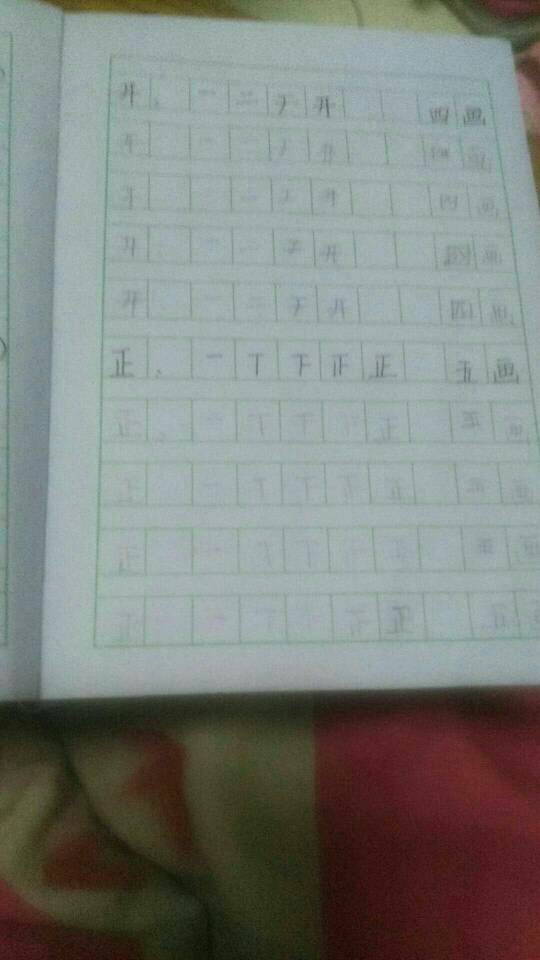 开、一二于开四画
开一二于开四画
开一二于开四画
开一二于开四画
开一二于开四画
正、一丅下正正五画
正、一丅下正五画
正一丅下正五画
正一丅下正五画
正一丅下正正五画